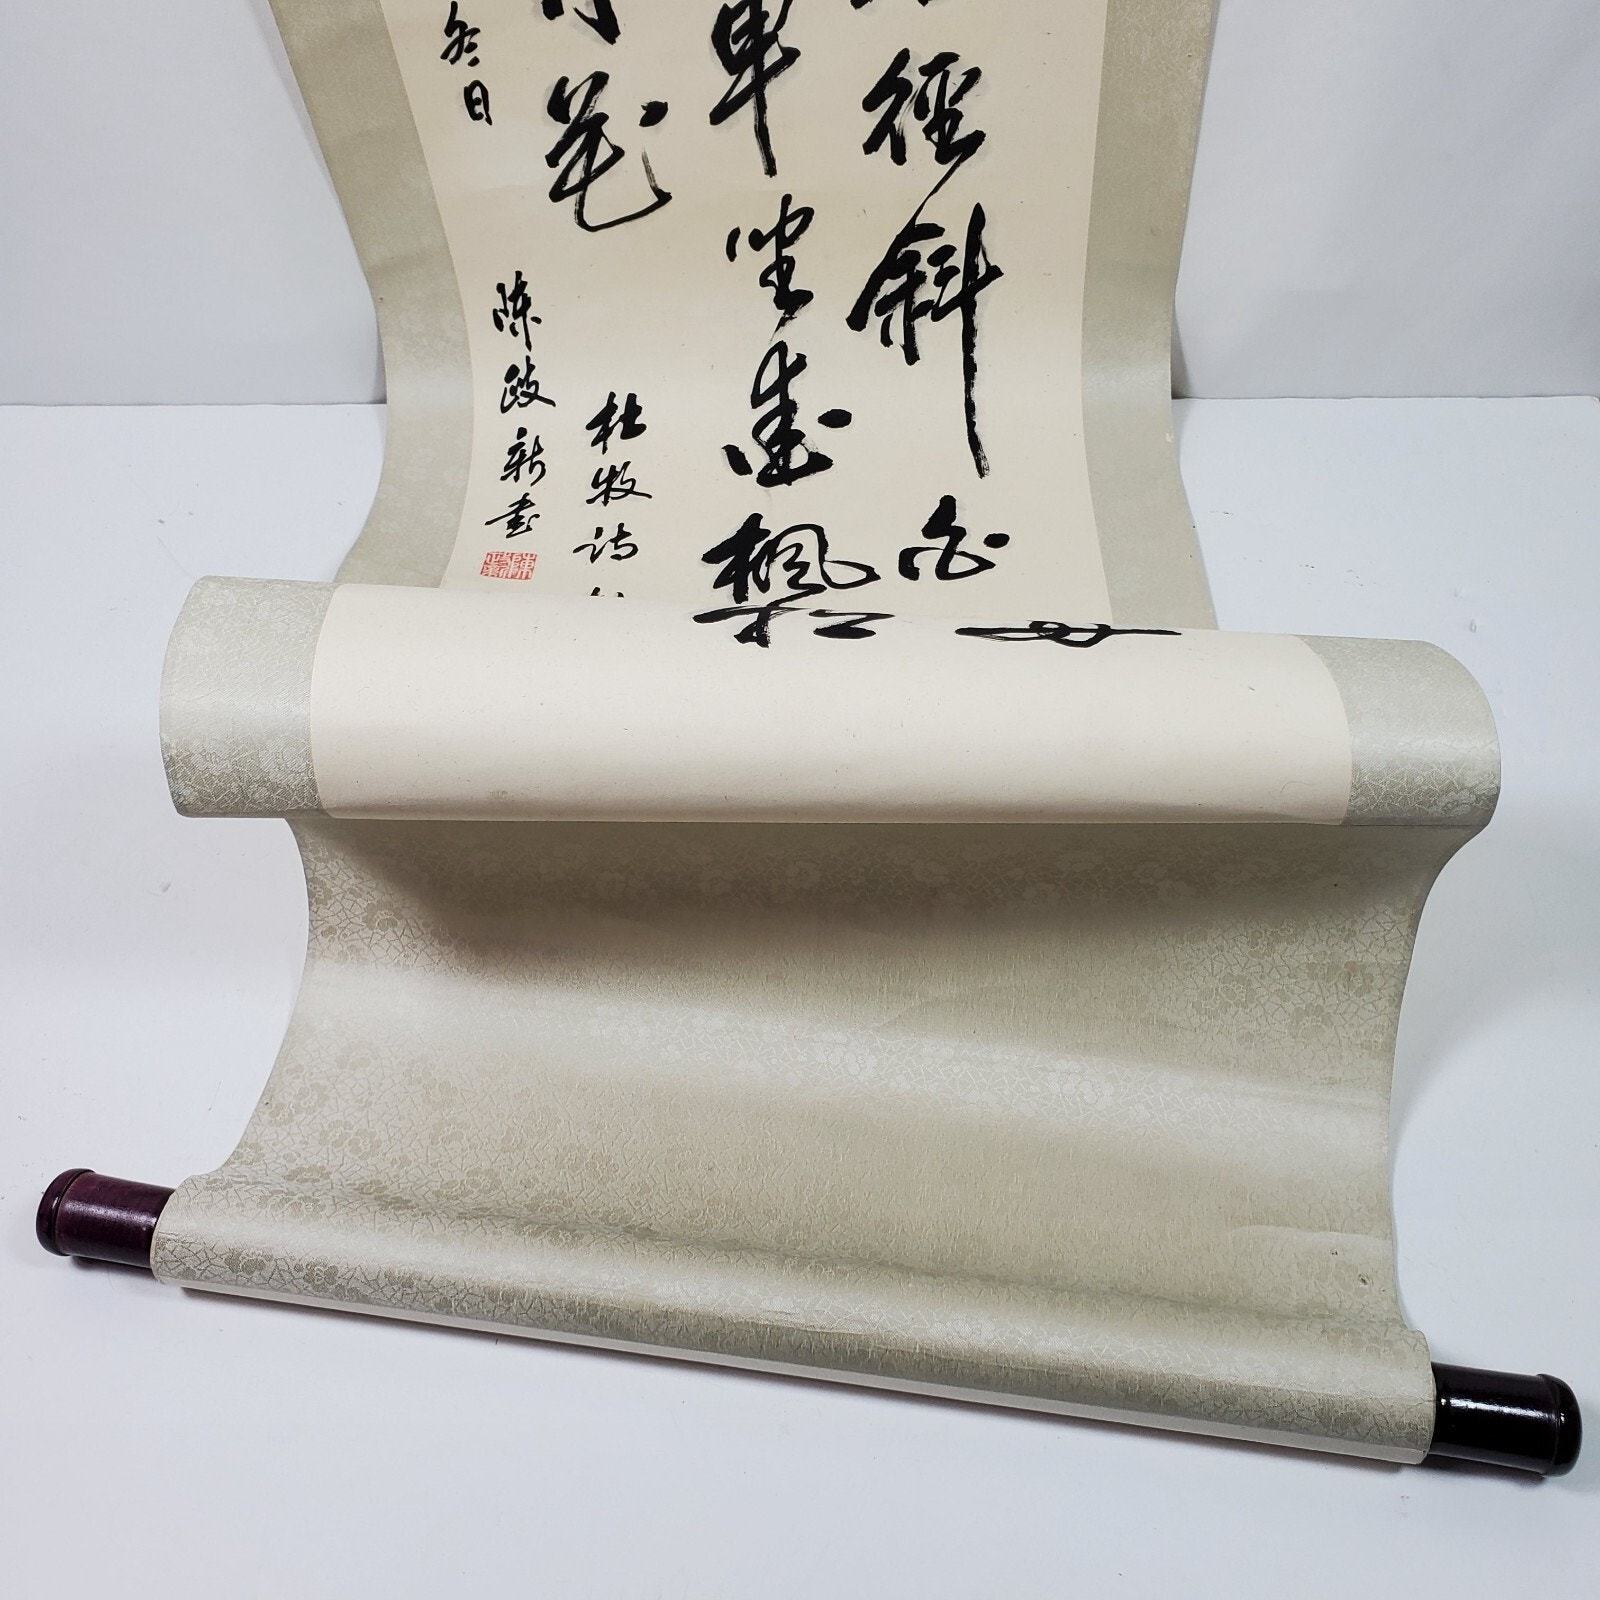 徑斜白
車坐愛楓林
花
杜牧詩
冬日 陳政新書